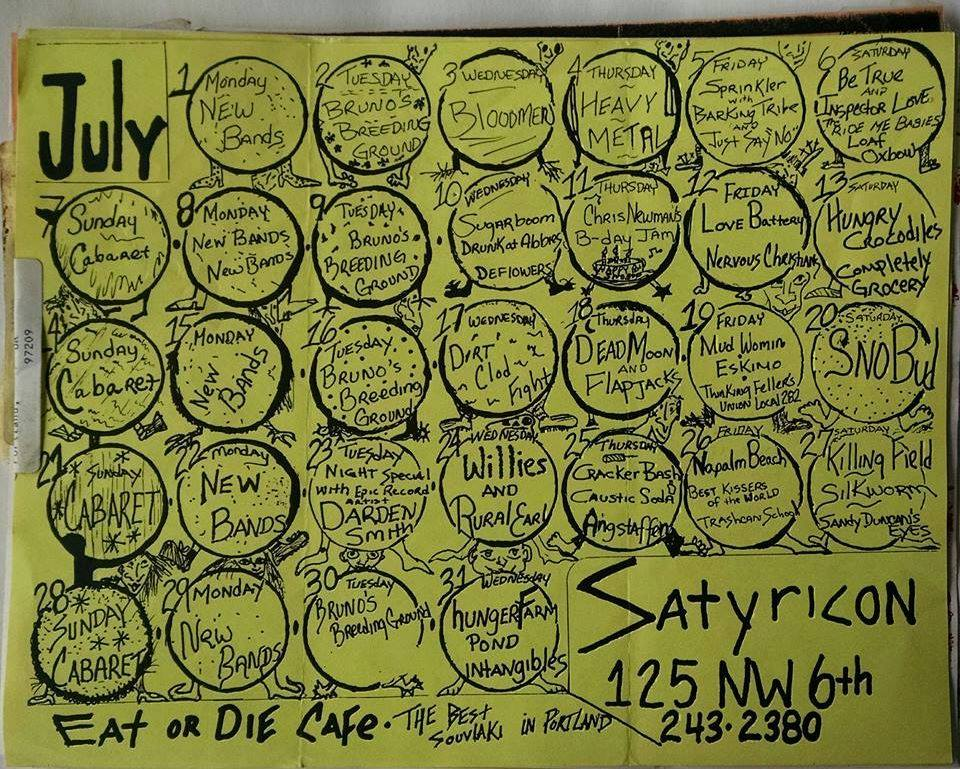 July
1 Monday
NEW
Bands
2 TUESDAY
BRUNO'S
BREEDING
GROUND
3 WEDNESDAY
BLOODMEN
4 THURSDAY
HEAVY
METAL
5 FRIDAY
SPRINKLER
WITH
BARKING TRIBE
AND
JUST SAY "NO"
6 SATURDAY
Be True
AND
INSPECTOR LOVE
"RIDE ME BABIES
LOAF
OXBOW
7
Sunday
Cabaret
8 MONDAY
NEW BANDS
NEW BANDS
9 TUESDAY
BRUNO'S
BREEDING
GROUND
10 WEDNESDAY
Sugarboom
DRUNK at Abbas
DEFLOWERS
11 THURSDAY
CHRIS NEWMAN'S
B-day JAM
12 FRIDAY
LOVE BATTERY
NERVOUS CHRISTIANS
13 SATURDAY
HUNGRY
CROCODILES
COMPLETELY
GROCERY
14
Sunday
Cabaret
15 MONDAY
New
BANDS
16
TUESDAY
BRUNO'S
Breeding
GROUND
17 WEDNESDAY
DIRT
Clod
Fight
18 Thursday
DEAD MOON
AND
FLAPJACKS
19 FRIDAY
Mud Womin
ESKIMO
Thinking Fellers
UNION LOCAL 282
20 SATURDAY
SNO BUD
21 SUNDAY
CABARET
22 Monday
NEW
BANDS
23 TUESDAY
NIGHT Special
with Epic Record
ARTIST
DARDEN
SMITH
24 WEDNESDAY
Willies
AND
Rural Earl
25 THURSDAY
CRACKER BASH
CAUSTIC SODA
Angstaffen
26 FRIDAY
Napalm Beach
BEST KISSERS
of the WORLD
TRASHCAN School
27 SATURDAY
Killing Field
SILKWORM
SANDY DUNCAN'S
EYES
28
SUNDAY
CABARET
29 MONDAY
New
BANDS
30 TUESDAY
BRUNO'S
Breeding Ground
31 WEDNESDAY
HUNGER FARM
POND
INTANGIBLES
SATYRICON
125 NW 6th
243·2380
EAT OR DIE CAFE · THE BEST
SOUVLAKI IN PORTLAND
97209